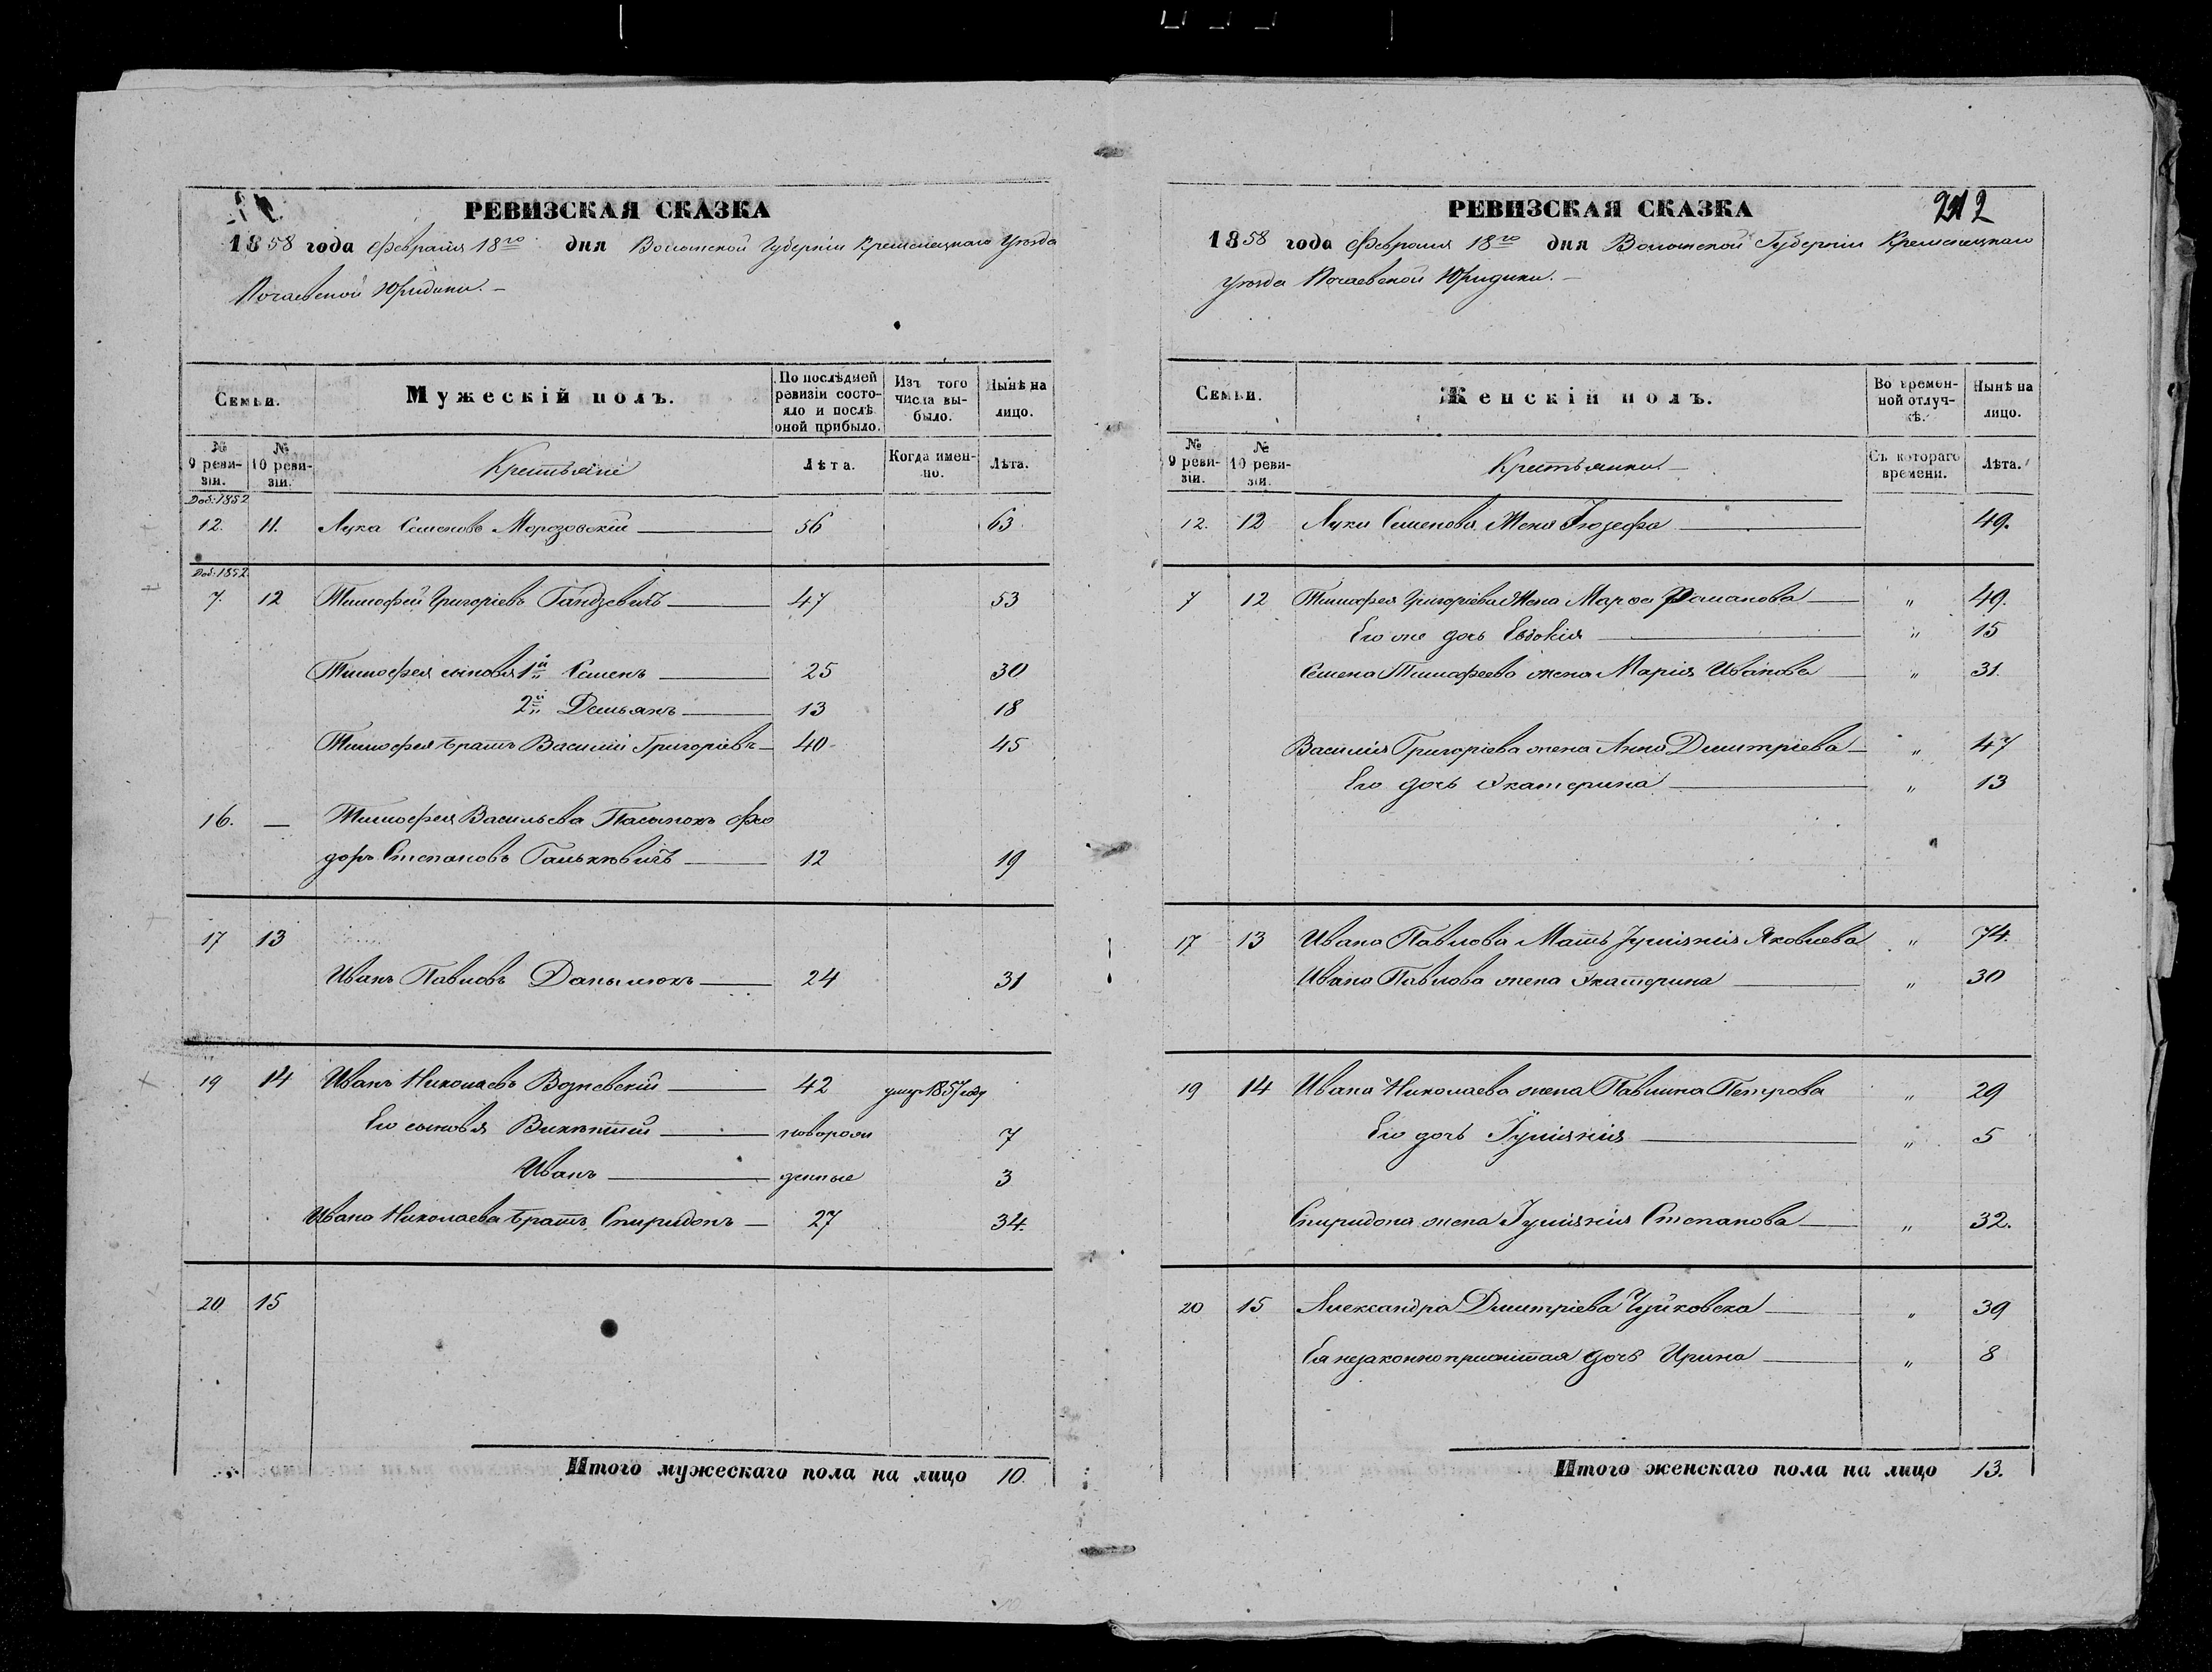 РЕВИЗСКАЯ СКАЗКА
1858 года Февраля 18го дня Волынской Губерніи Кременецкаго Уѣзда
Почаевской Юридики. –
Семьи.
Мужескій полъ.
По послѣдней ревизіи состояло и послѣ оной прибыло.
Изъ того числа выбыло.
Нынѣ на лицо.
№ 9 ревизіи.
№ 10 ревизіи.
Крестьяне
Лѣта.
Когда именно.
Лѣта.
Доб: 1852
12. 11. Лука Семеновъ Морозовскій 56 63
Доб: 1852
7. 12 Тимофей Григоріевъ Гандзевичъ 47 53
Тимофея сыновья 1й Семенъ 25 30
2й Демьянъ 13 18
Тимофея братъ Василій Григоріевъ 40 45
16. — Тимофея Васильева Пасынокъ Фео
доръ Степановъ 12 19
17 13
Иванъ Павловъ Данылюкъ 24 31
19 14 Иванъ Николаевъ Возневскій 42 умер 1857 году
Его сыновья Викентій новорож 7
Иванъ денные 3
Ивана Николаева братъ Спиридонъ 27 34
20 15
Итого мужескаго пола на лицо 10.
212
РЕВИЗСКАЯ СКАЗКА
1858 года Февраля 18го дня Волынской Губерніи Кременецкаго
Уѣзда Почаевской Юридики. –
Семьи.
Женскій полъ.
Во временной отлучкѣ.
Нынѣ на лицо.
№ 9 ревизіи.
№ 10 ревизіи.
Крестьянки
Съ котораго времени.
Лѣта.
12. 12 Луки Семенова Жена Іюзефа 49.
7 12 Тимофея Григоріева Жена Марфа Романова " 49.
Его же дочь Евдокія " 15
Семена Тимофеева жена Марія Иванова " 31.
Василія Григоріева жена Анна Дмитріева " 47
Его дочь Екатерина " 13
17 13 Ивана Павлова Мать Іуліянія Яковлева " 74.
Ивана Павлова жена Екатерина " 30
19 14 Ивана Николаева жена Павлина Петрова " 29
Его дочь Іуліянія " 5
Спиридона жена Іуліянія Степанова " 32.
20 15 Александра Дмитріева Чуйковска " 39
Ея незаконноприжитая дочь Ирина " 8
Итого женскаго пола на лицо 13.